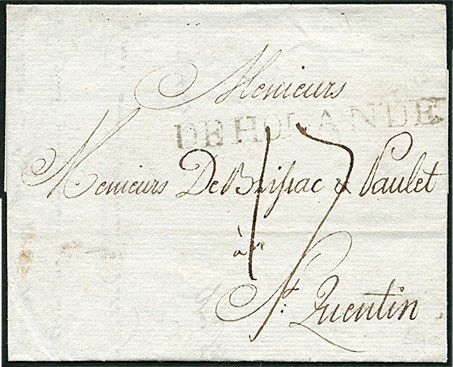 Messieurs
DE HOLANDE
Messieurs De Brissac & Paulet
17
à
St. Quentin